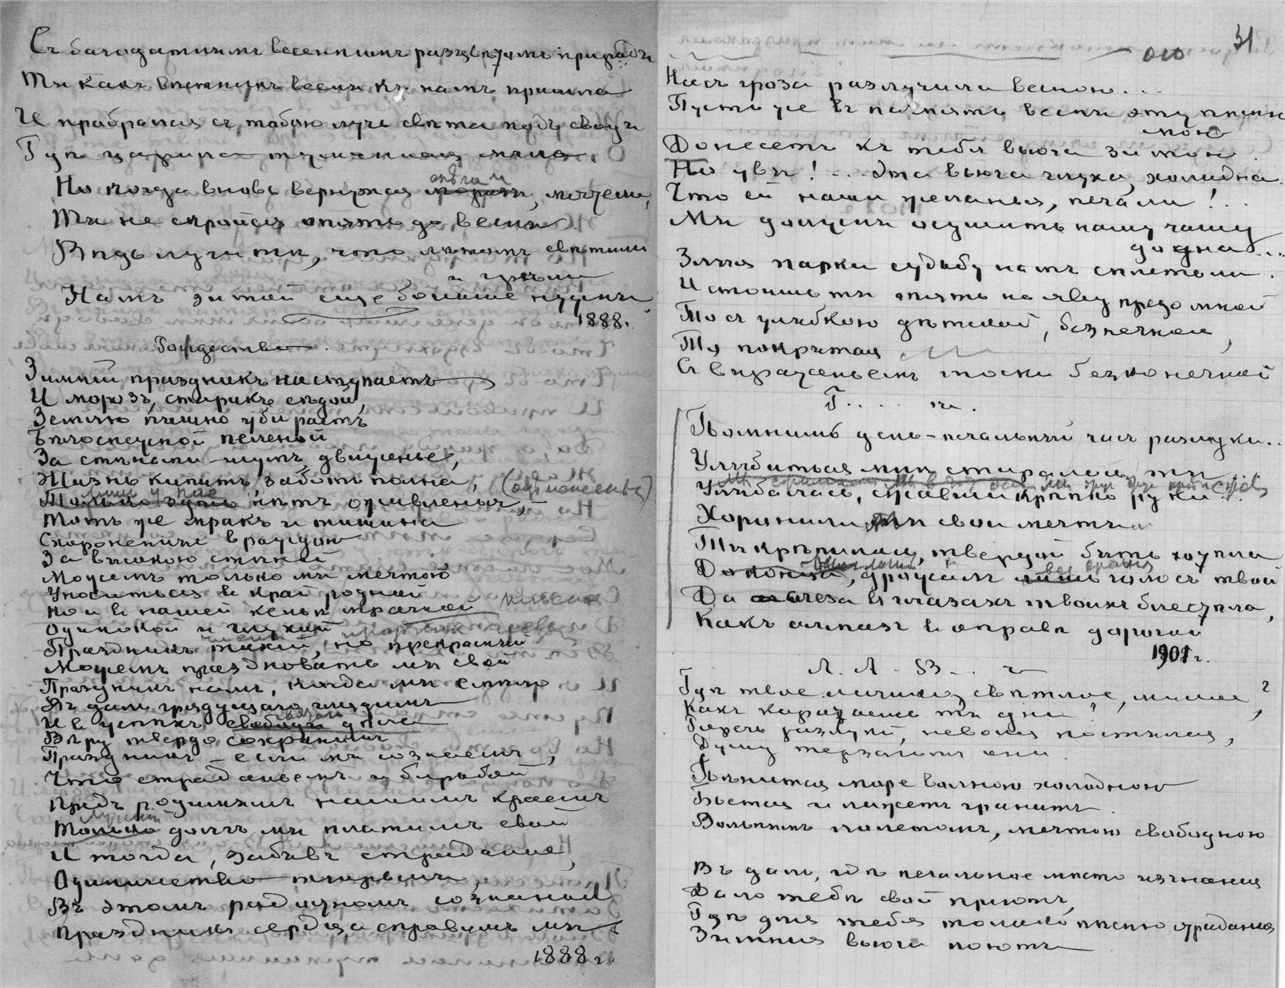 Съ благодатнымъ весеннимъ разцвѣтомъ природы
Ты какъ вѣстникъ весны къ намъ пришла
И прибраться съ тобою лучи свѣта
Гдѣ царила
Но когда вновь вернутся морозы, мятели
Ты не скройся опять до весны
Вѣдь лучи ти, что лѣтомъ свѣтили
и грѣли
Намъ зимой еще больше нужны
1888 г.
Рождество.
Зимній праздникъ наступаетъ
И морозъ, старикъ сѣдой,
Землю пышно убираетъ
Бѣлоснѣжной пеленой
За стѣнами шумъ, движенье,
Жизнь кипитъ, заботъ полна,
Только здѣсь нѣтъ оживленья,
Тотъ же мракъ и тишина
За высокою стѣной
Можемъ только мы мечтою
Уноситься въ край родной
Но и въ нашей кельѣ мрачной
Одинокой и глухой
Праздникъ тихій, но прекрасный
Можемъ праздновать мы свой
Праздникъ намъ, когда мы смѣло
Въ даль грядущаго глядимъ
И въ успѣхъ свободы дѣла
Вѣру твердо сохранимъ
Праздникъ – если мы сознаемъ,
Что страданьемъ и борьбой
Предъ родимымъ нашимъ краемъ
Только долгъ мы платимъ свой
И тогда, забывъ страданія,
Одиночество тюрьмы,
Въ этомъ радужномъ сознаньи
Праздникъ сердца справимъ мы
1888 г.
31.
Насъ гроза разлучила весною...
Пусть же въ память весны эту пѣснь
мою
Донесетъ къ тебѣ вьюга зимою.
Но увы!... Эта вьюга глуха, холодна.
Что ей наши желанья, печали!..
Мы должны осушить нашу чашу
до дна...
Злыя парки судьбу намъ сплетали.
И стоишь ты опять на яву предо мной
То съ улыбкою дѣтской, безпечной,
Съ выраженьемъ тоски безконечной
Г..... ч.
Помнишь день – печальный часъ разлуки...
Улыбаться мнѣ старалась ты
Улыбалась, сжавши крѣпко руки
Хоронили мы свои мечты
Ты крѣпилась, твердой быть хотѣла
дрожалъ лишь голосъ твой
Да слеза въ глазахъ твоихъ блестѣла,
Какъ алмазъ въ оправѣ дорогой
1901 г.
Л. А. В... ч
Гдѣ твое личико свѣтлое, милое,
Какъ коротаешь ты дни?
Горечь разлуки, неволя постылая,
Душу терзаютъ они.
Пѣнится море волною холодною
Бьется и лижетъ гранитъ
Вольнымъ полетомъ, мечтою свободною
Въ даль, гдѣ печальное мѣсто изгнанія
Дало тебѣ свой пріютъ,
Гдѣ для тебя только пѣсню страданія
Зимнія вьюги поютъ